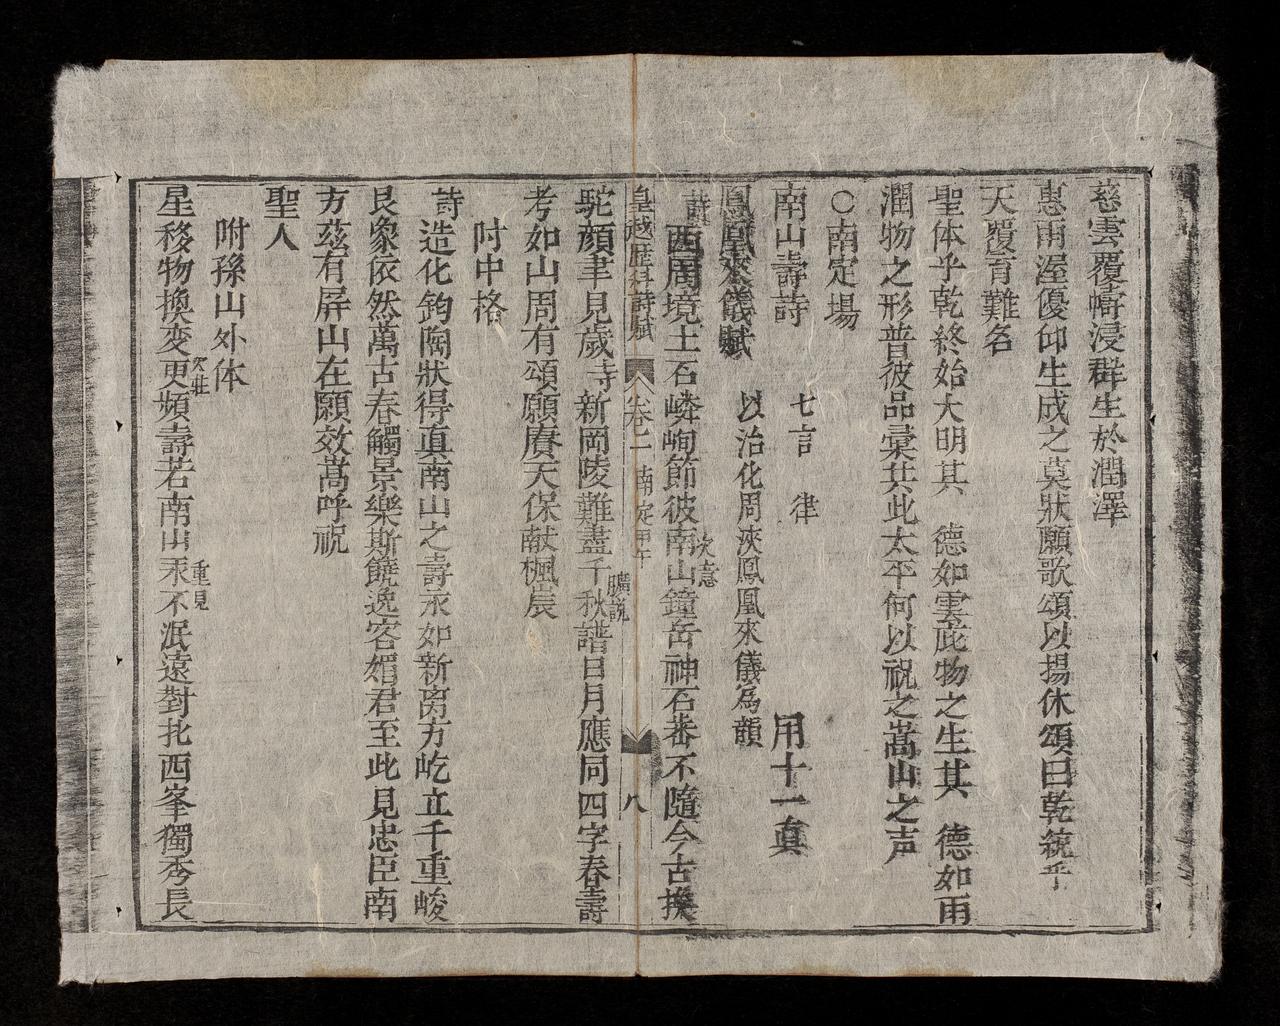 慈雲覆幬浸群生於潤澤
惠雨渥優仰生成之莫狀願歌頌以揚休頌曰乾統乎
天覆育難名
聖体乎乾終始大明其 德如雲庇物之生其 德如雨
潤物之形普彼品彙共此太平何以祝之嵩山之声
〇南定場
南山壽詩 七言 律 用十一真
鳳凰來儀賦 以治化周浹鳳凰來儀為韻
詩 西周境土石嶙峋節彼南山鐘岳神石葊不隨今古換
次意
皇越歷科詩賦 卷二 南定甲午 八
駝顏聿見歲寺新岡陵難盡千秋譜日月應同四字春壽
曠説
考如山周有頌願賡天保献楓宸
吋中格
詩 造化鈞陶狀得真南山之壽永如新离方屹立千重峻
艮象依然萬古春觸景樂斯饒逸客媚君至此見忠臣南
方茲有屏山在願效嵩呼祝
聖人
附孫山外体
星移物換変更頻壽若南山永不泯遠對北西峯獨秀長
次壯
重見